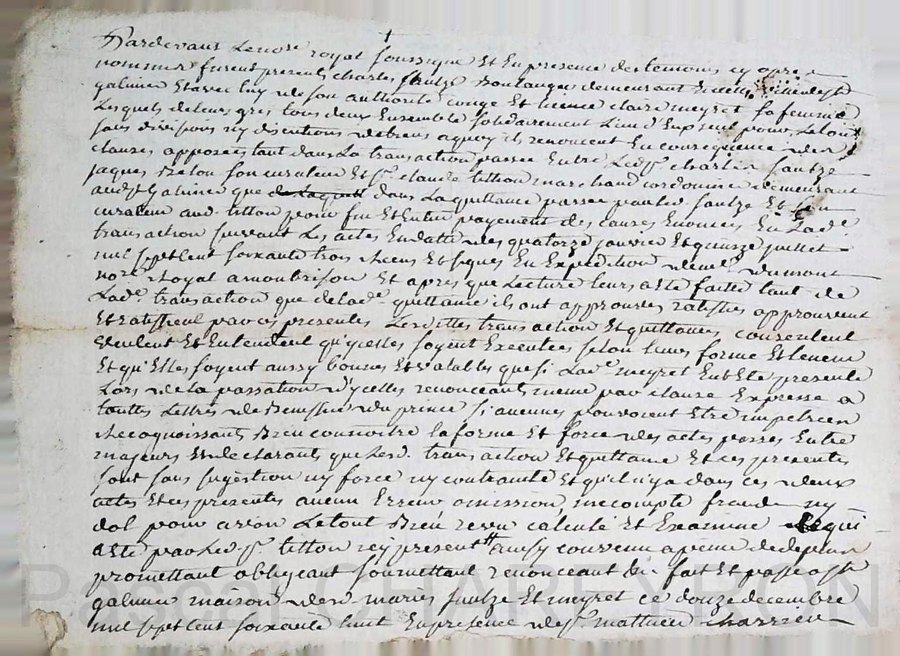 Pardevant Le nore royal soussigné Et En presence des temoins cy apres
nommés furent presents charles faulze Boulanger demeurant
galmier Et avec luy de son authorité congé Et licence claire meyret sa femme
Lesquels de leurs grés tous deux Ensemble solidairement L'un d'Eux seul pour Le tout
sans division ny discution de biens a quoy ils renoncent En consequence des
clauses apposées tant dans La transaction passée Entre Led. sr charles faulze
jaques Relou son curateur Et sr claude titton marchand cordonnier demeurant
aud. st Galmier que dans La quittance passée par led. faulze Et son
curateur aud. titton pour fin Et Entier payement des causes Enoncées En Lad.e
transaction suivant Les actes En datte des quatorze janvier Et quinze juillet
mil sept cent soixante trois receus Et signés En Expedition de me Dumont
nore Royal a montbrison Et apres que Lecture leurs a Eté faitte tant de
Lad.e transaction que de lad.e quittance ils ont approuvés ratiffiés approuvent
Et ratiffient par ces presentes Lesdittes transaction Et quittances consentent
veulent Et Entendent qu'ycelles soyent Executées selon leurs forme Et teneur
Et qu'Elles soyent aussy bonnes Et valables que si Lad.e meyret Eut Eté presente
Lors de La passation d'ycelles renonceant meme par clause Expresse a
touttes Lettres de Benefice du prince si aucunes pouvoient Etre impetrées
Recognoissants Bien connoitre la forme Et force des actes passés Entre
majeurs Et declarants que Lesd. transaction Et quittance Et ces presentes
sont sans sugestion ny force ny contrainte Et qu'il n'y a dans ces deux
actes Et ces presentes aucun Erreur omission mecompte fraude ny
dol pour avoir Le tout Bien reveu calculé Et Examiné Ce qui
a Eté par Led. sr titton icy present aussy convenu a peine de depens
promettant obligeant soumettant renonceant &c fait Et passé a st
galmier maison des mariés faulze Et meyret ce douze decembre
mil sept cent soixante huit En presence de sr mathieu charrier
PASCAL CHARTYRON